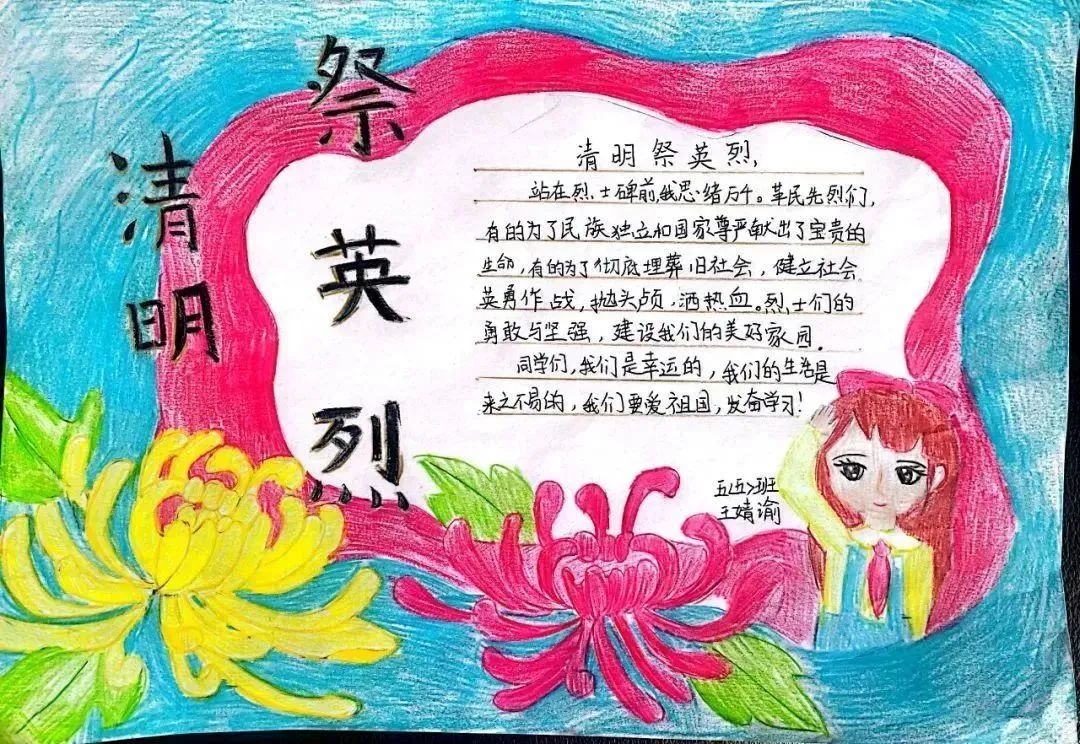 清明
祭英烈
清明祭英烈,
站在烈士碑前,我思绪万千。革民先烈们,
有的为了民族独立和国家尊严献出了宝贵的
生命,有的为了彻底埋葬旧社会,健立社会
英勇作战,抛头颅,洒热血。烈士们的
勇敢与坚强,建设我们的美好家园.
同学们,我们是幸运的,我们的生活是
来之不易的,我们要爱祖国,发奋学习!
五〈五〉班
王婧渝